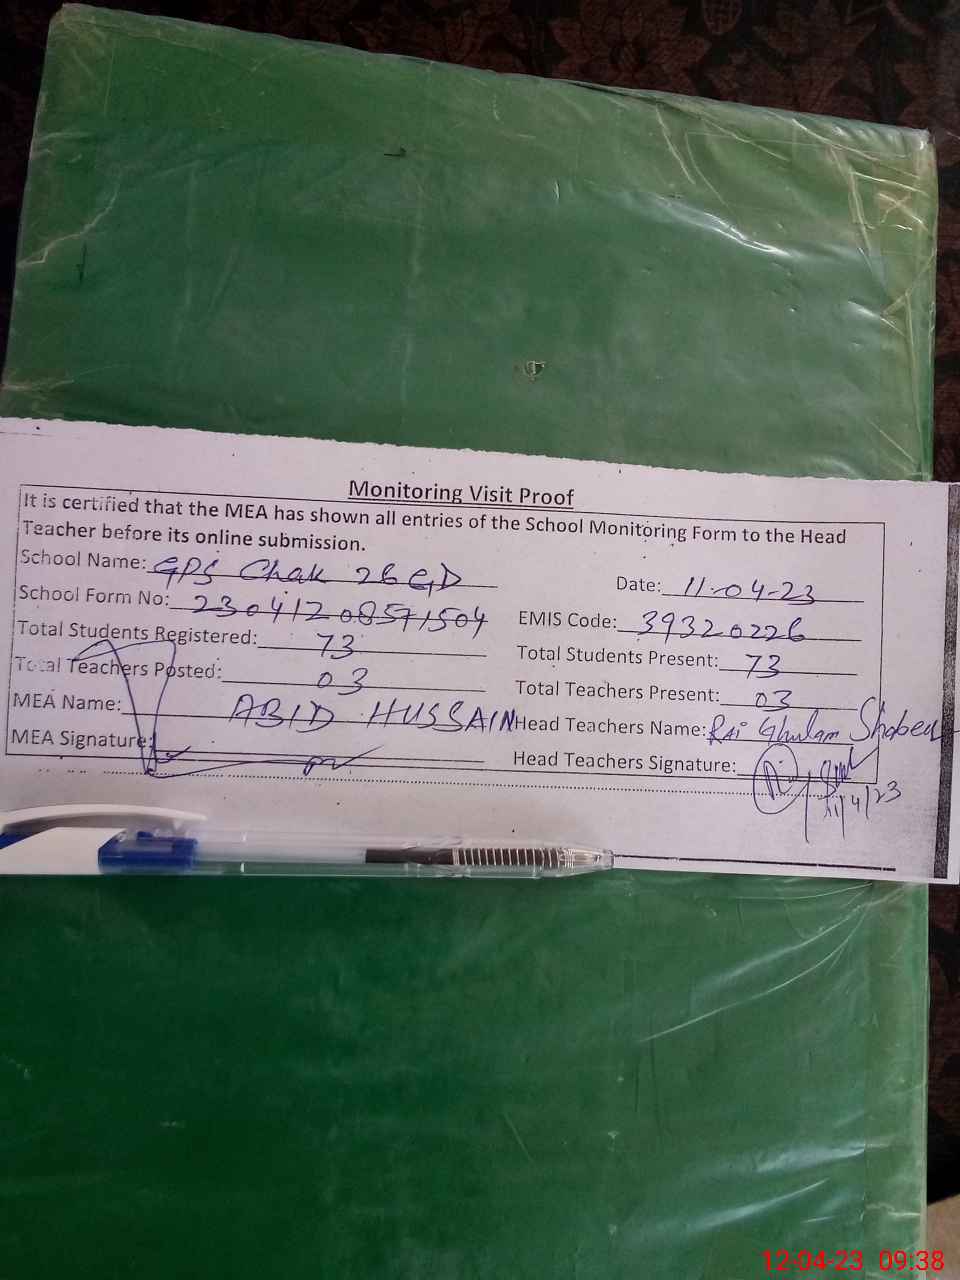 Monitoring Visit Proof
It is certified that the MEA has shown all entries of the School Monitoring Form to the Head
Teacher before its online submission.
School Name: GPS Chak 26 GD Date: 11-04-23
School Form No: 23041208571504 EMIS Code: 39320226
Total Students Registered: 73 Total Students Present: 73
Total Teachers Posted: 03 Total Teachers Present: 03
MEA Name: ABID HUSSAIN Head Teachers Name: RAi Ghulam Shabeer
MEA Signature: Head Teachers Signature:
11/4/23
12-04-23 09:38